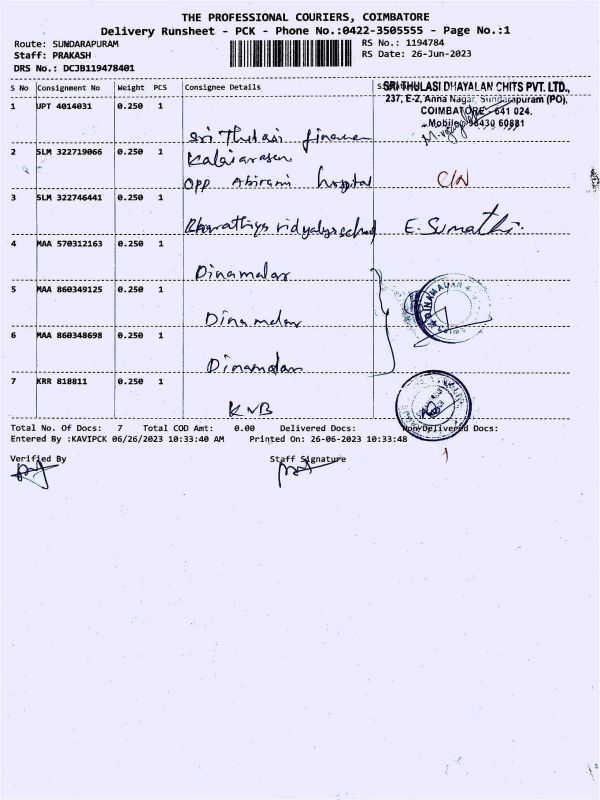 THE PROFESSIONAL COURIERS, COIMBATORE
Delivery Runsheet - PCK - Phone No.:0422-3505555 - Page No.:1
Route: SUNDARAPURAM
RS No.: 1194784
Staff: PRAKASH
RS Date: 26-Jun-2023
DRS No.: DCJB119478401
S No Consignment No Weight PCS Consignee Details
SRI THULASI DHAYALAN CHITS PVT. LTD.,
237, E-2, Anna Nagar, Sundarapuram (PO),
COIMBATORE - 641 024.
Mobile: 98430 60881
1 UPT 4014031 0.250 1
Sri Thulasi finance
2 SLM 322719066 0.250 1
Kalaiarasan
opp Abirami hospital C/N
3 SLM 322746441 0.250 1
Bharathiya vidyalya school E. Sumathi
4 MAA 570312163 0.250 1
Dinamalar
5 MAA 860349125 0.250 1
DINAMALAR
Dinamalar
6 MAA 860348698 0.250 1
Dinamalar
7 KRR 818811 0.250 1
KVB
Total No. Of Docs: 7 Total COD Amt: 0.00 Delivered Docs: Non Delivered Docs:
Entered By :KAVIPCK 06/26/2023 10:33:40 AM Printed On: 26-06-2023 10:33:48
1
Verified By Staff Signature